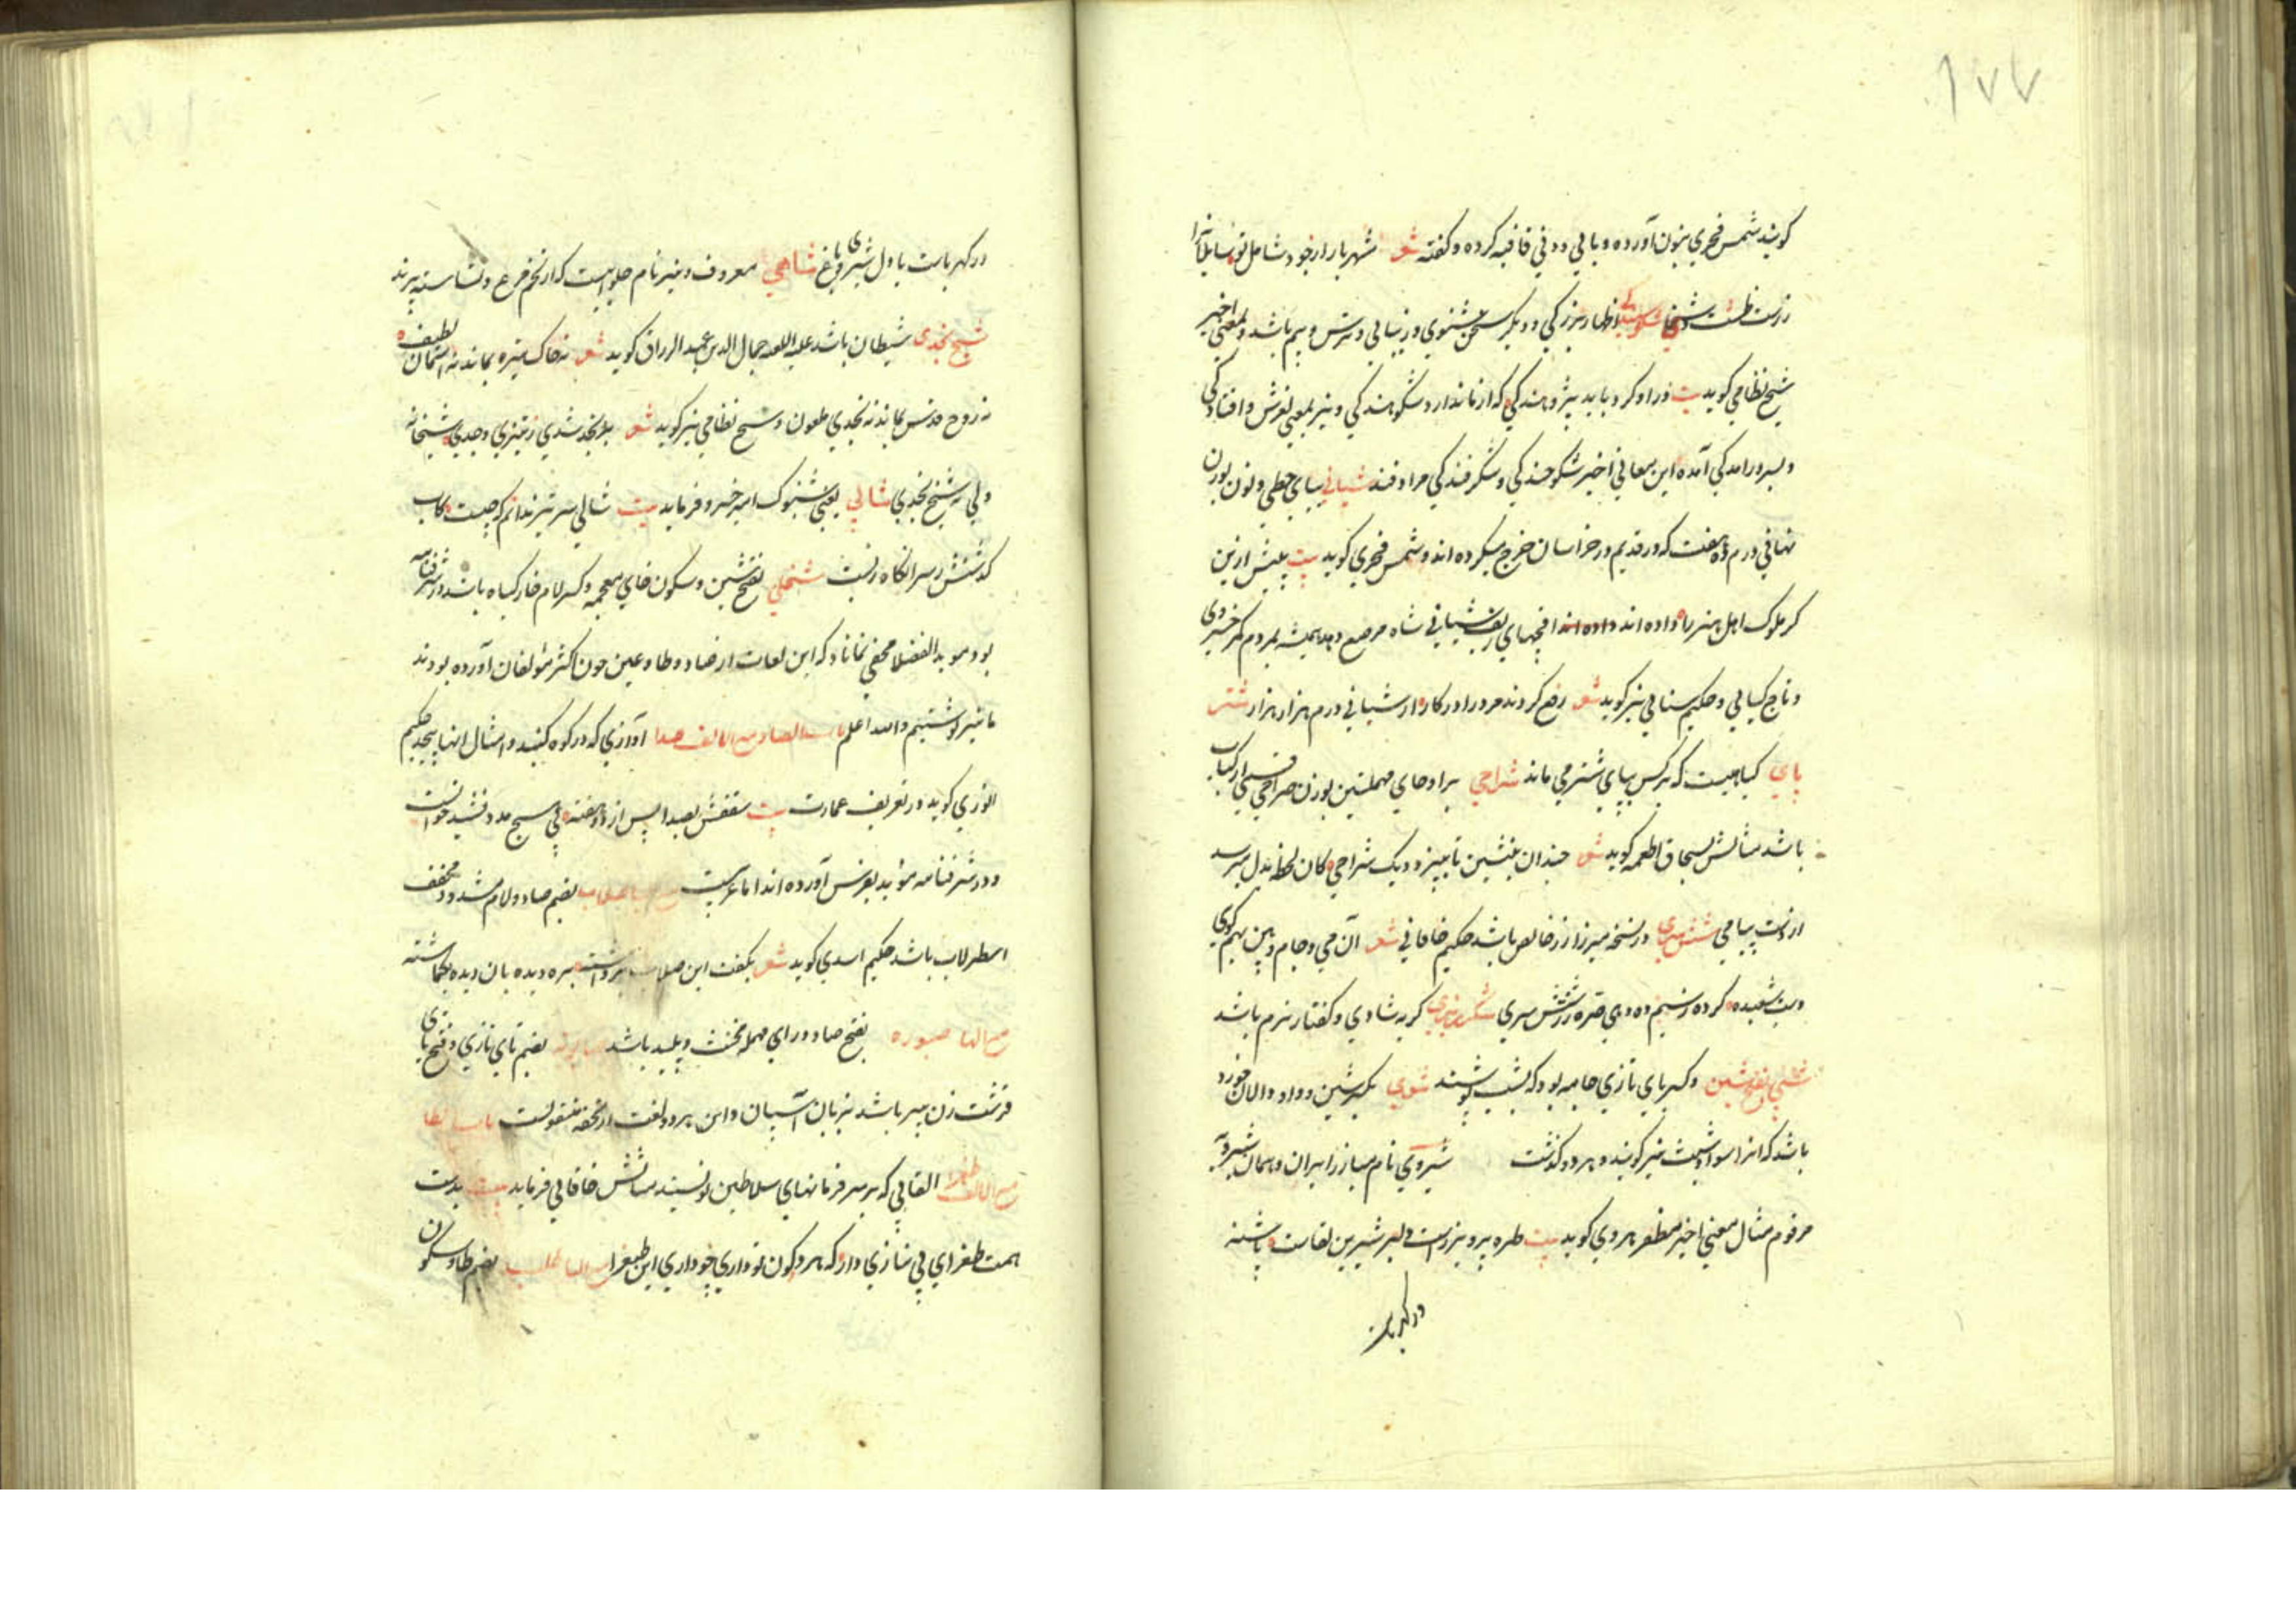 ۱۷۷
کویند شمس فخری بنون آورده و با لی ودنی قافیه کرده و کفته شعر شهریار از خود شامل تو سایلانرا
زرست ظشت و شیخانی شکوهیدکی اظهار بزرکی و دیکر سخن شنوی و زیبائی و ترس و بیم باشد و بمعنی اخیر
شیخ نظامی کوید بیت ورا و کرد باید پژوهندکی که از ما ندارد شکوهندکی و نیز بمعنی لغزش و افتادکی
و بسر درامدکی آمده این معانی اخیر شکوخندکی و شکرفندکی مرادفند شیانی بیای حطی و نون بوزن
نهانی درم ده هفت که در قدیم در خراسان خرج میکرده اند و شمس فخری کوید بیت پیش ازین
کر ملوک اهل هنر را داده اند داده اند اقچهای زیف شیانی شاه مرصع دهد همیشه بمردم کمر خسروی
و تاج کیانی و حکیم سنائی نیز کوید شعر رفع کردند مرورا در کار از شیانی درم هزار هزار شتر
پای کیاهیست که برکش بپای شتر می ماند شراحی برا و حای مهملتین بوزن صراحی قسمی از کباب
باشد مثالش بسحاق اطعمه کوید شعر چندان بنشین تا بپزد دیک شراحی کان لحظه بدل میرسد
از دوست پیامی شش سری در نسخه میرزا زر خالص باشد حکیم خاقانی شعر آن می و جام بین بهم کوی
دست شعبده کرده ز سیم ده دهی صره زر شش سری شکر ریزی کریه شادی و کفتار نرم باشد
شبی بفتح شین و کسر بای تازی جامه بود که بشب پوشند شوی بکسر شین و واو والان خورد
باشد که انرا سواد شبت نیز کویند و هر دو کذشت شیروی نام مبارز ایران و همان شیرویه
مرقوم مثال معنی اخیر مظفر هروی کوید بیت طره پرویز است و لبر شیرین لقاست پاشنه
در کهر باست
در کهر باست یا ول شیروی باغ شاهی معروف و نیز نام حلوائیست که از تخم مرغ و نشاسته پزند
شیخ نجدی شیطان باشد علیه اللعنه جمال الدین عبد الرزاق کوید شعر نه خاک تیره بماند نه آسمان لطیف
نه روح قدس بماند نه نجدی ملعون و شیخ نظامی نیز کوید شعر بنجد شدی ز تیزی وجدی شیخانه
ولی نه شیخ نجدی شالی یعنی شنوک امیر خسرو فرماید بیت شالی سر تیز ندانم که چیست کاب
کذشتش ز سر انکاه زیست شخلی بفتح شین و سکون خای معجمه و کسر لام خار کیاه باشد در شرفنامه
بود موید الفضلا مخفی نماناد که این لغات از ضاد و طا و عین چون اکثر مؤلفان آورده بودند
ما نیز نوشتیم والله اعلم باب الصاد مع الالف صدا آوازی که در کوه کنبد و امثال انها پیچد حکیم
انوری کوید در تعریف عمارت بیت سقفش بصدا پس از دو هفته بی هیچ مدد نشید خوانست
و در شرفنامه موید بفرس آورده اند اما عربیست مع البا صلاب بضم صاد و لام مشدد مخفف
اسطرلاب باشد حکیم اسدی کوید شعر بکفت این صلاب برداشته بره دیده بان دیده بکماشته
مع الها صوره بفتح صاد و رای مهمله مخنث و پلید باشد بضم بای تازی و فتح تای
قرشت زن پیر باشد بزبان آسیان و این هر دو لغت از تحفه منقولست باب الطا
مع الالف طغرا القابی که بر سر فرمانهای سلاطین نویسند مثالش خاقانی فرماید بیت بدست
همت طغرای بی نیازی دار که هر دو کون تو داری چو داری این طغرا مع البا طلب بضم طا و سکون